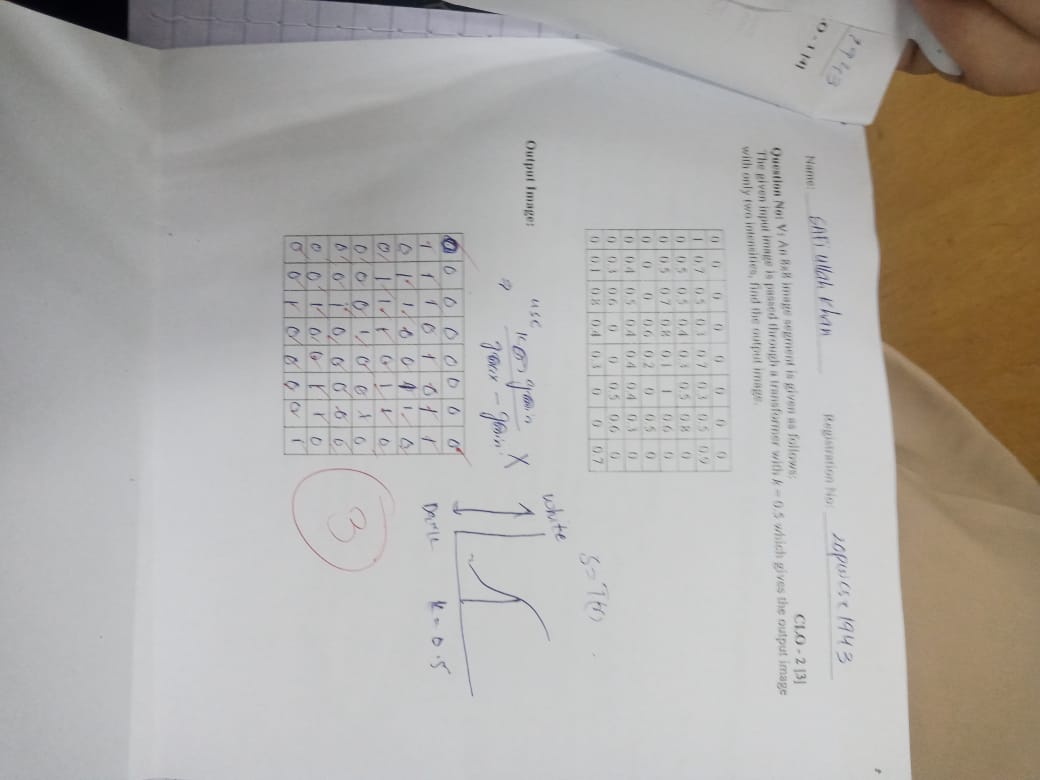 2943
Name: Safi ullah khan Registration No: 20pwcse1943
CLO - 2 [3]
Question No: V: An 8x8 image segment is given as follows:
The given input image is passed through a transformer with k = 0.5 which gives the output image
with only two intensities, find the output image.
0 0 0 0 0 0 0 0
1 0.7 0.5 0.3 0.7 0.3 0.5 0.9
0 0.5 0.5 0.4 0.3 0.5 0.8 0
0 0.5 0.7 0.8 0.1 1 0.6 0
0 0 0 0.6 0.2 0 0.5 0
0 0.4 0.5 0.4 0.4 0.4 0.3 0
0 0.3 0.6 0 0 0.5 0.6 0
0 0.1 0.8 0.4 0.3 0 0 0.7
S = T(r)
white
Output Image:
use
gmin
gmax - gmin
X
Dark k = 0.5
0 0 0 0 0 0 0 0
1 1 1 0 1 0 1 1
0 1 1 0 0 1 1 0
0 1 1 1 0 1 1 0
0 0 0 1 0 0 1 0
0 0 1 0 0 0 0 0
0 0 1 0 0 1 1 0
0 0 1 0 0 0 0 1
3